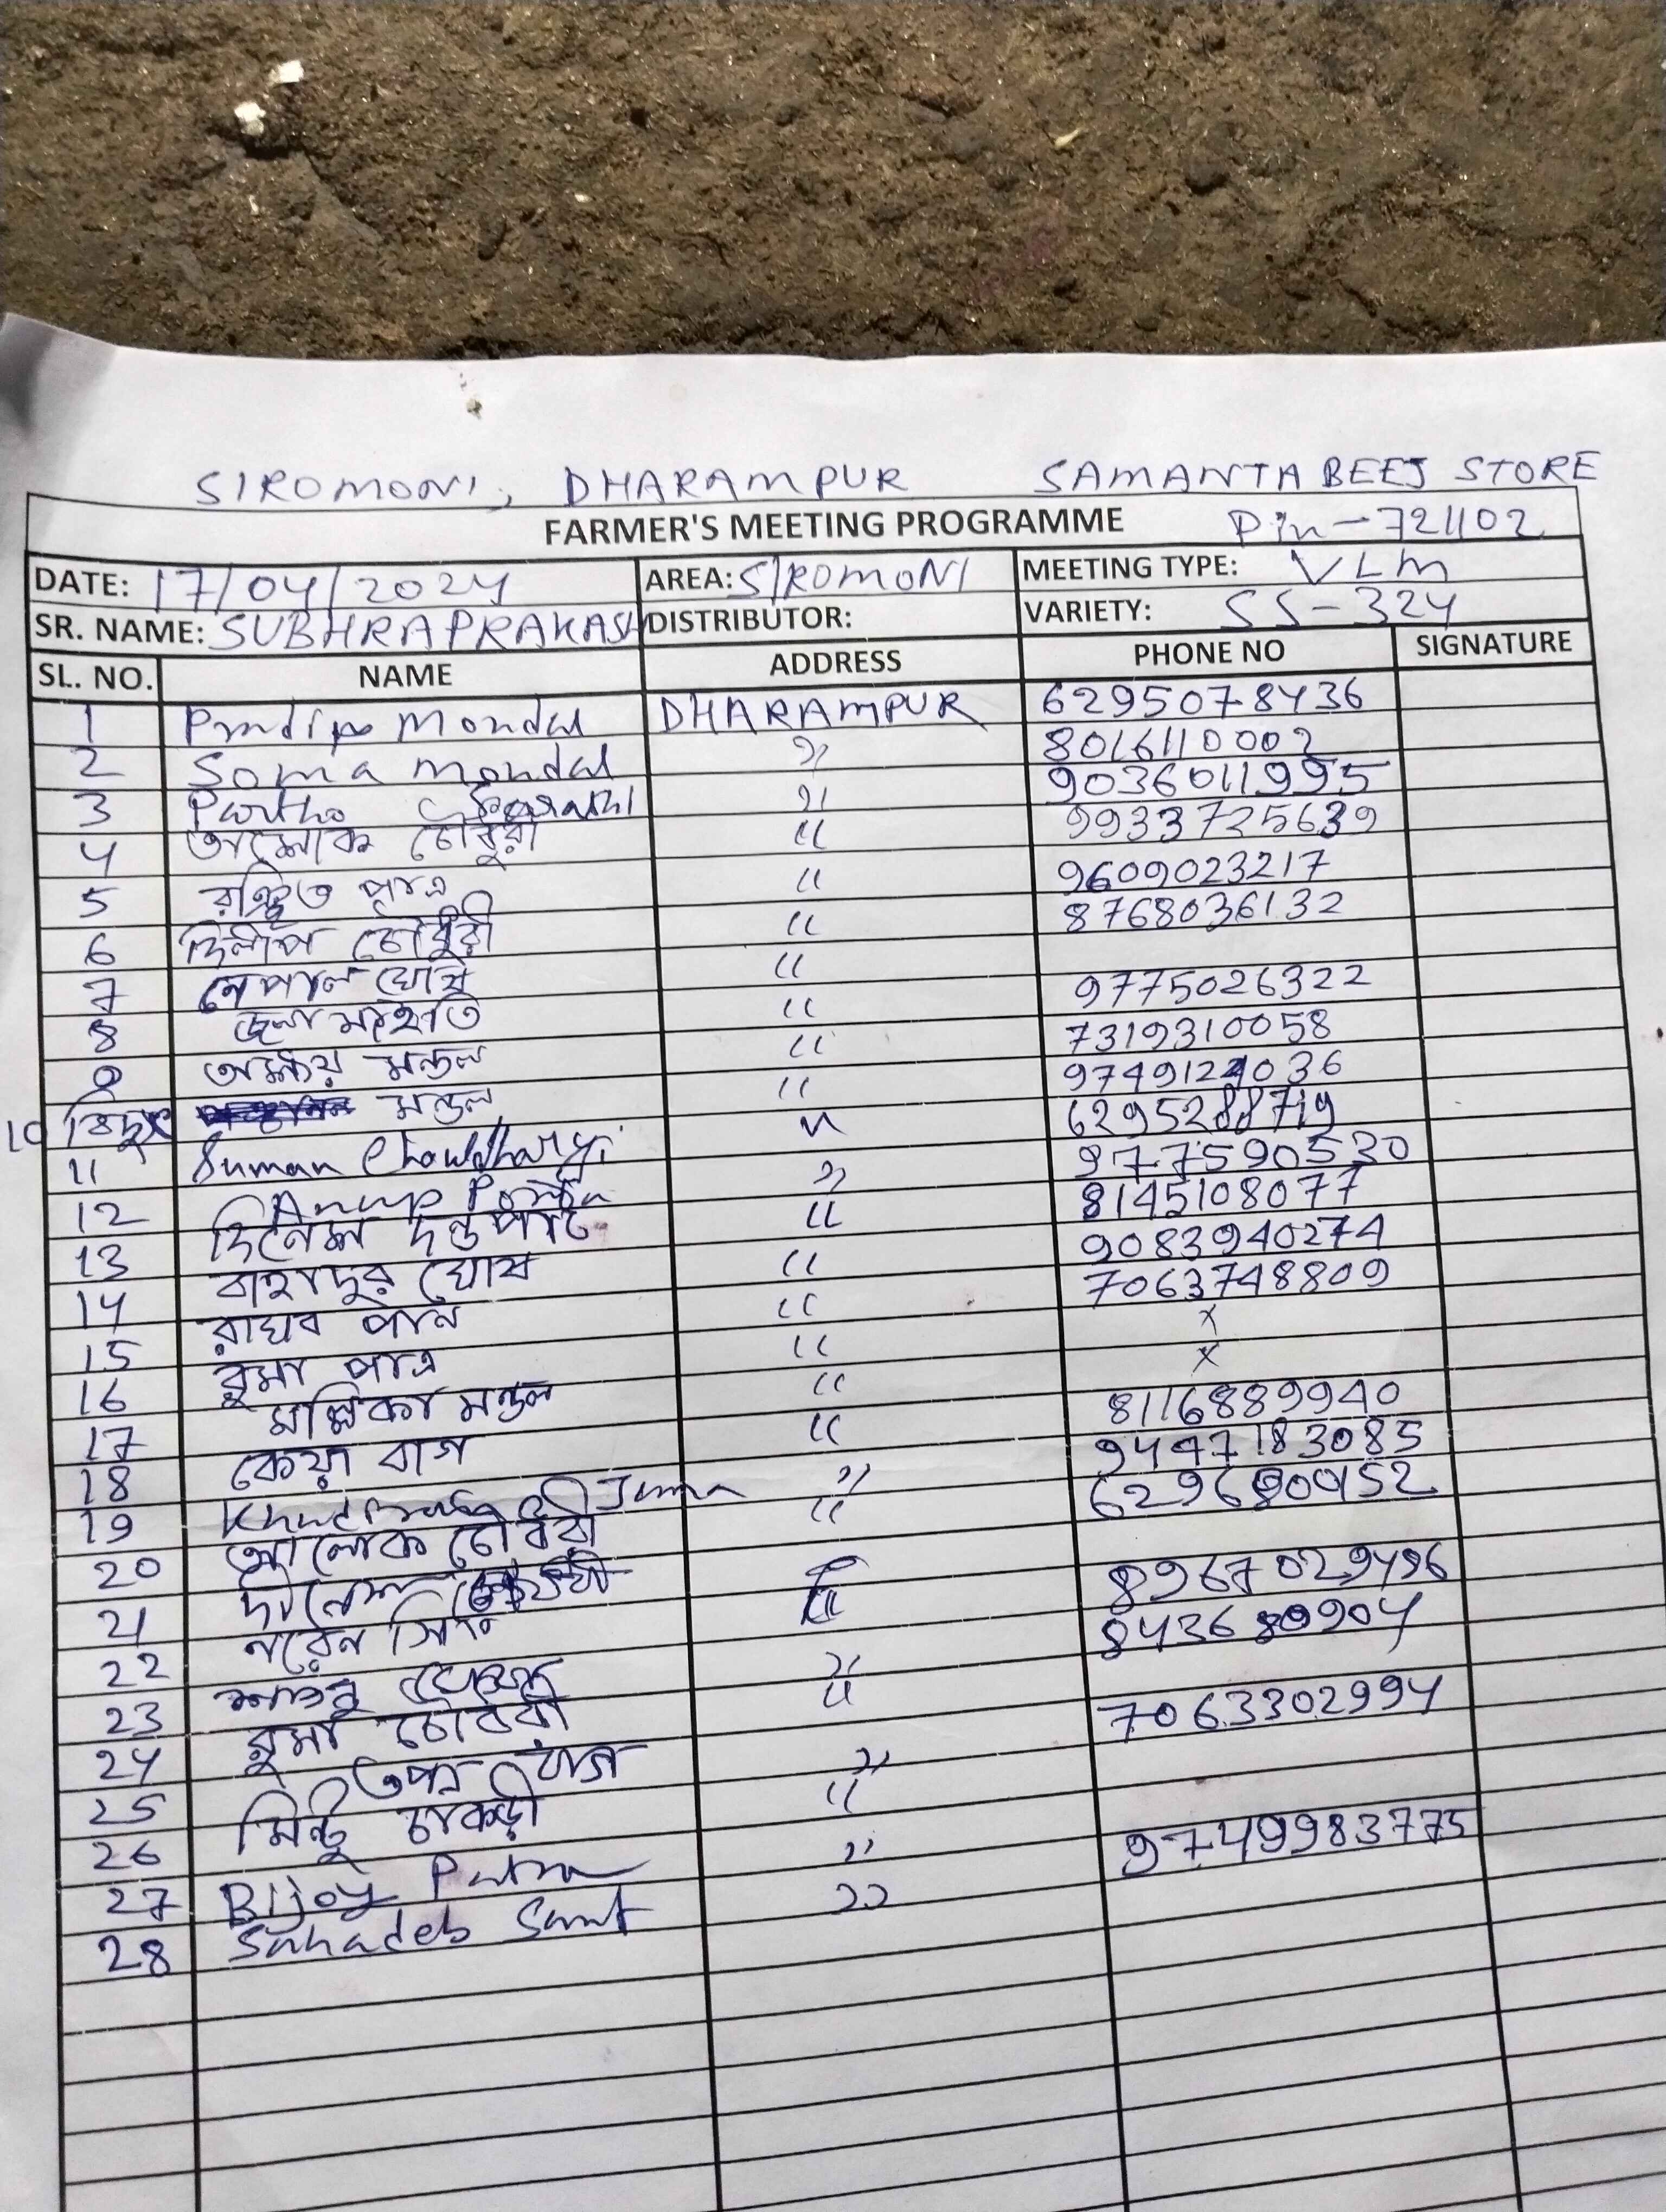 SIROMONI, DHARAMPUR SAMANTA BEEJ STORE
FARMER'S MEETING PROGRAMME Pin-721102
DATE: 17/04/2024 AREA: SIROMONI MEETING TYPE: VLM
SR. NAME: SUBHRAPRAKASH DISTRIBUTOR: VARIETY: SS-324
SL. NO. NAME ADDRESS PHONE NO SIGNATURE
1 Pradip Mondal DHARAMPUR 6295078436
2 Soma Mondal " 8016110002
3 Partho " 9036011995
4 অশোক চৌধুরী " 9933725639
5 রঞ্জিত পাত্র " 9609023217
6 দিলীপ চৌধুরী " 8768036132
7 নেপাল ঘোষ "
8 জনা মাইতি " 9775026322
9 অক্ষয় মন্ডল " 7319310058
10 মন্ডল "
11 Suman Chowdhary "
12 Anup " 9775590530
13 দিনেশ দন্ডপাট " 8145108077
14 বাহাদুর ঘোষ " 9083940274
15 রাঘব পান " 7063748809
16 রুমা পাত্র " x
17 মল্লিকা মন্ডল " x
18 কেয়া বাগ " 8116889940
19 Jana " 9447183085
20 আলোক চৌধুরী "
21 দীনেশ
22 নরেন সিং 8967029496
23 "
24 রুমা চৌধুরী " 7063302994
25 বাগ "
26 মিন্টু চাকড়ী "
27 Bijoy Patra " 9749983775
28 Sahadeb "